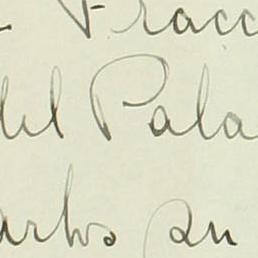 Fracc
del Pala
arlos su